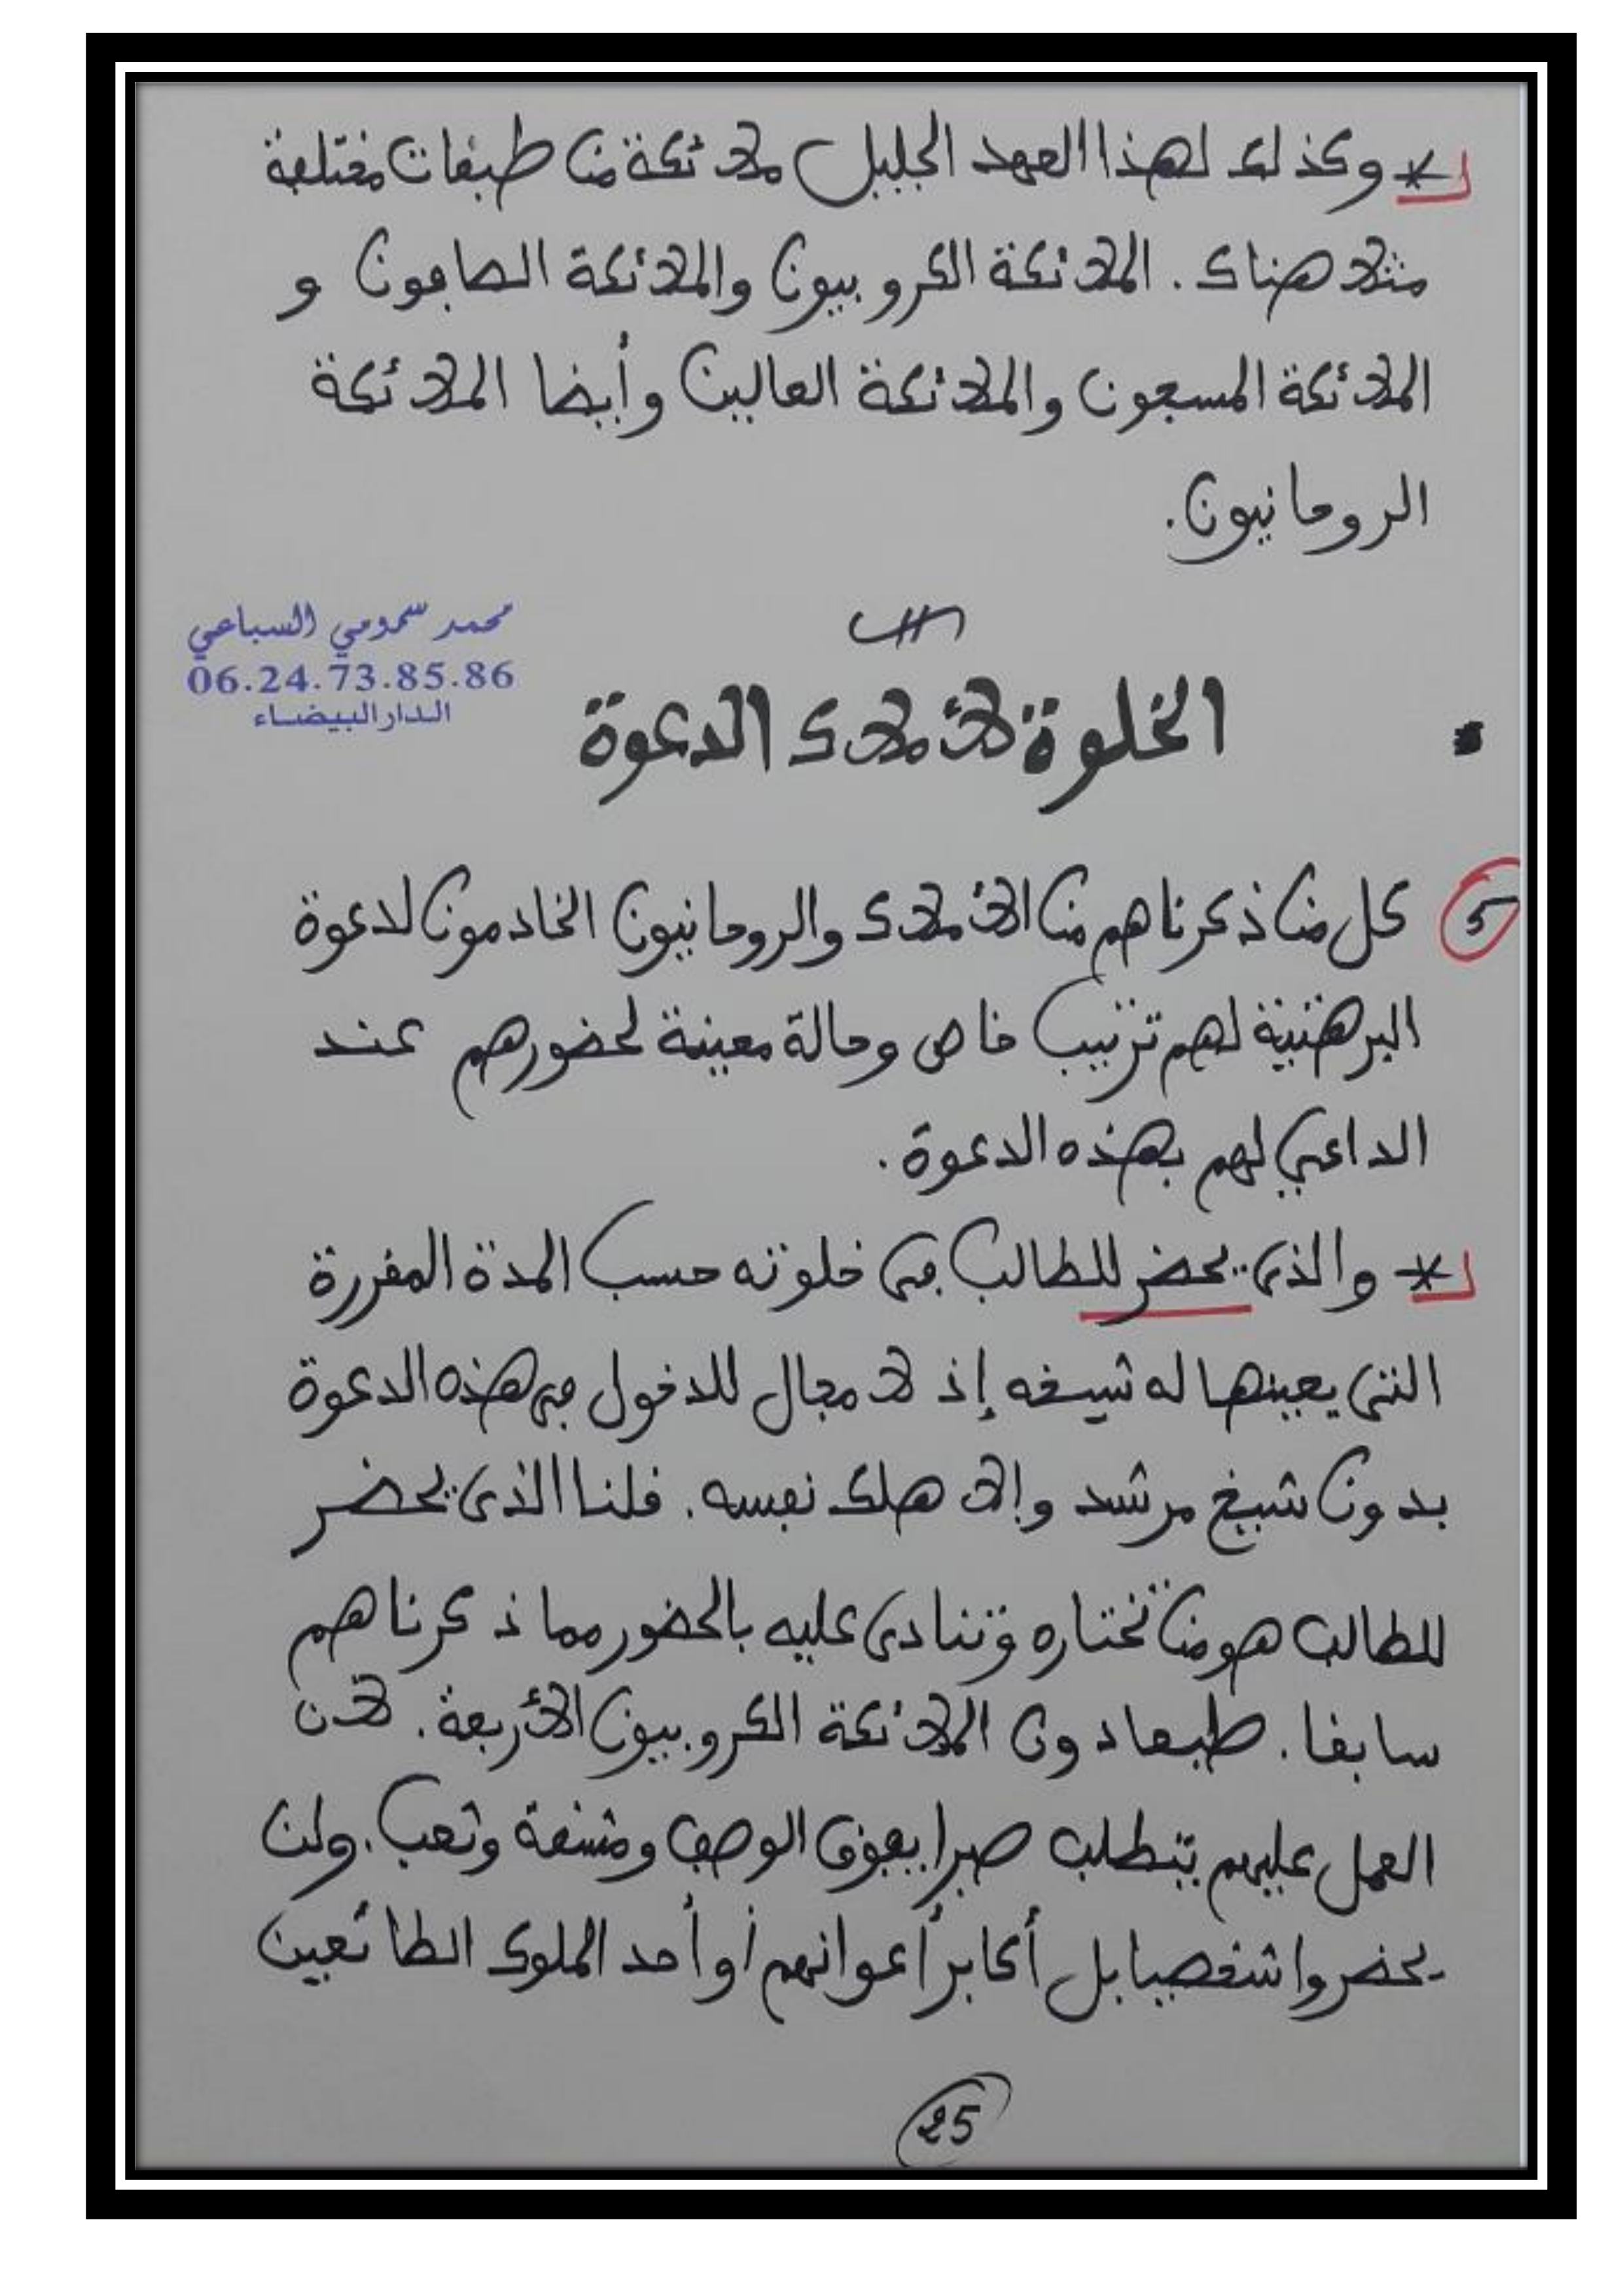 * وكذلك لهذا العهد الجليل ملائكة من طبقات مختلفة
مثلا هناك. الملائكة الكروبيون والملائكة الصافون و
الملائكة المسبحون والملائكة العالين وأيضا الملائكة
الروحانيون.
محمد سمومي السباعي
06.24.73.85.86
الدار البيضاء
الخلوة لأملاك الدعوة
5 كل من ذكرناهم من الأملاك والروحانيون الخادمون لدعوة
البرهتية لهم ترتيب خاص وحالة معينة لحضورهم عند
الداعي لهم بهذه الدعوة.
* والذي يحضر للطالب في خلوته حسب المدة المقررة
التي يعينها له شيخه إذ لا مجال للدخول في هذه الدعوة
بدون شيخ مرشد وإلا هلك نفسه. قلنا الذي يحضر
للطالب هو من تختاره وتنادي عليه بالحضور مما ذكرناهم
سابقا. طبعا دون الملائكة الكروبيون الأربعة. لأن
العمل عليهم يتطلب صبرا يفوق الوصف ومشقة وتعب. ولن
يحضروا شخصيا بل أكابر أعوانهم أو أحد الملوك الطائعين
25